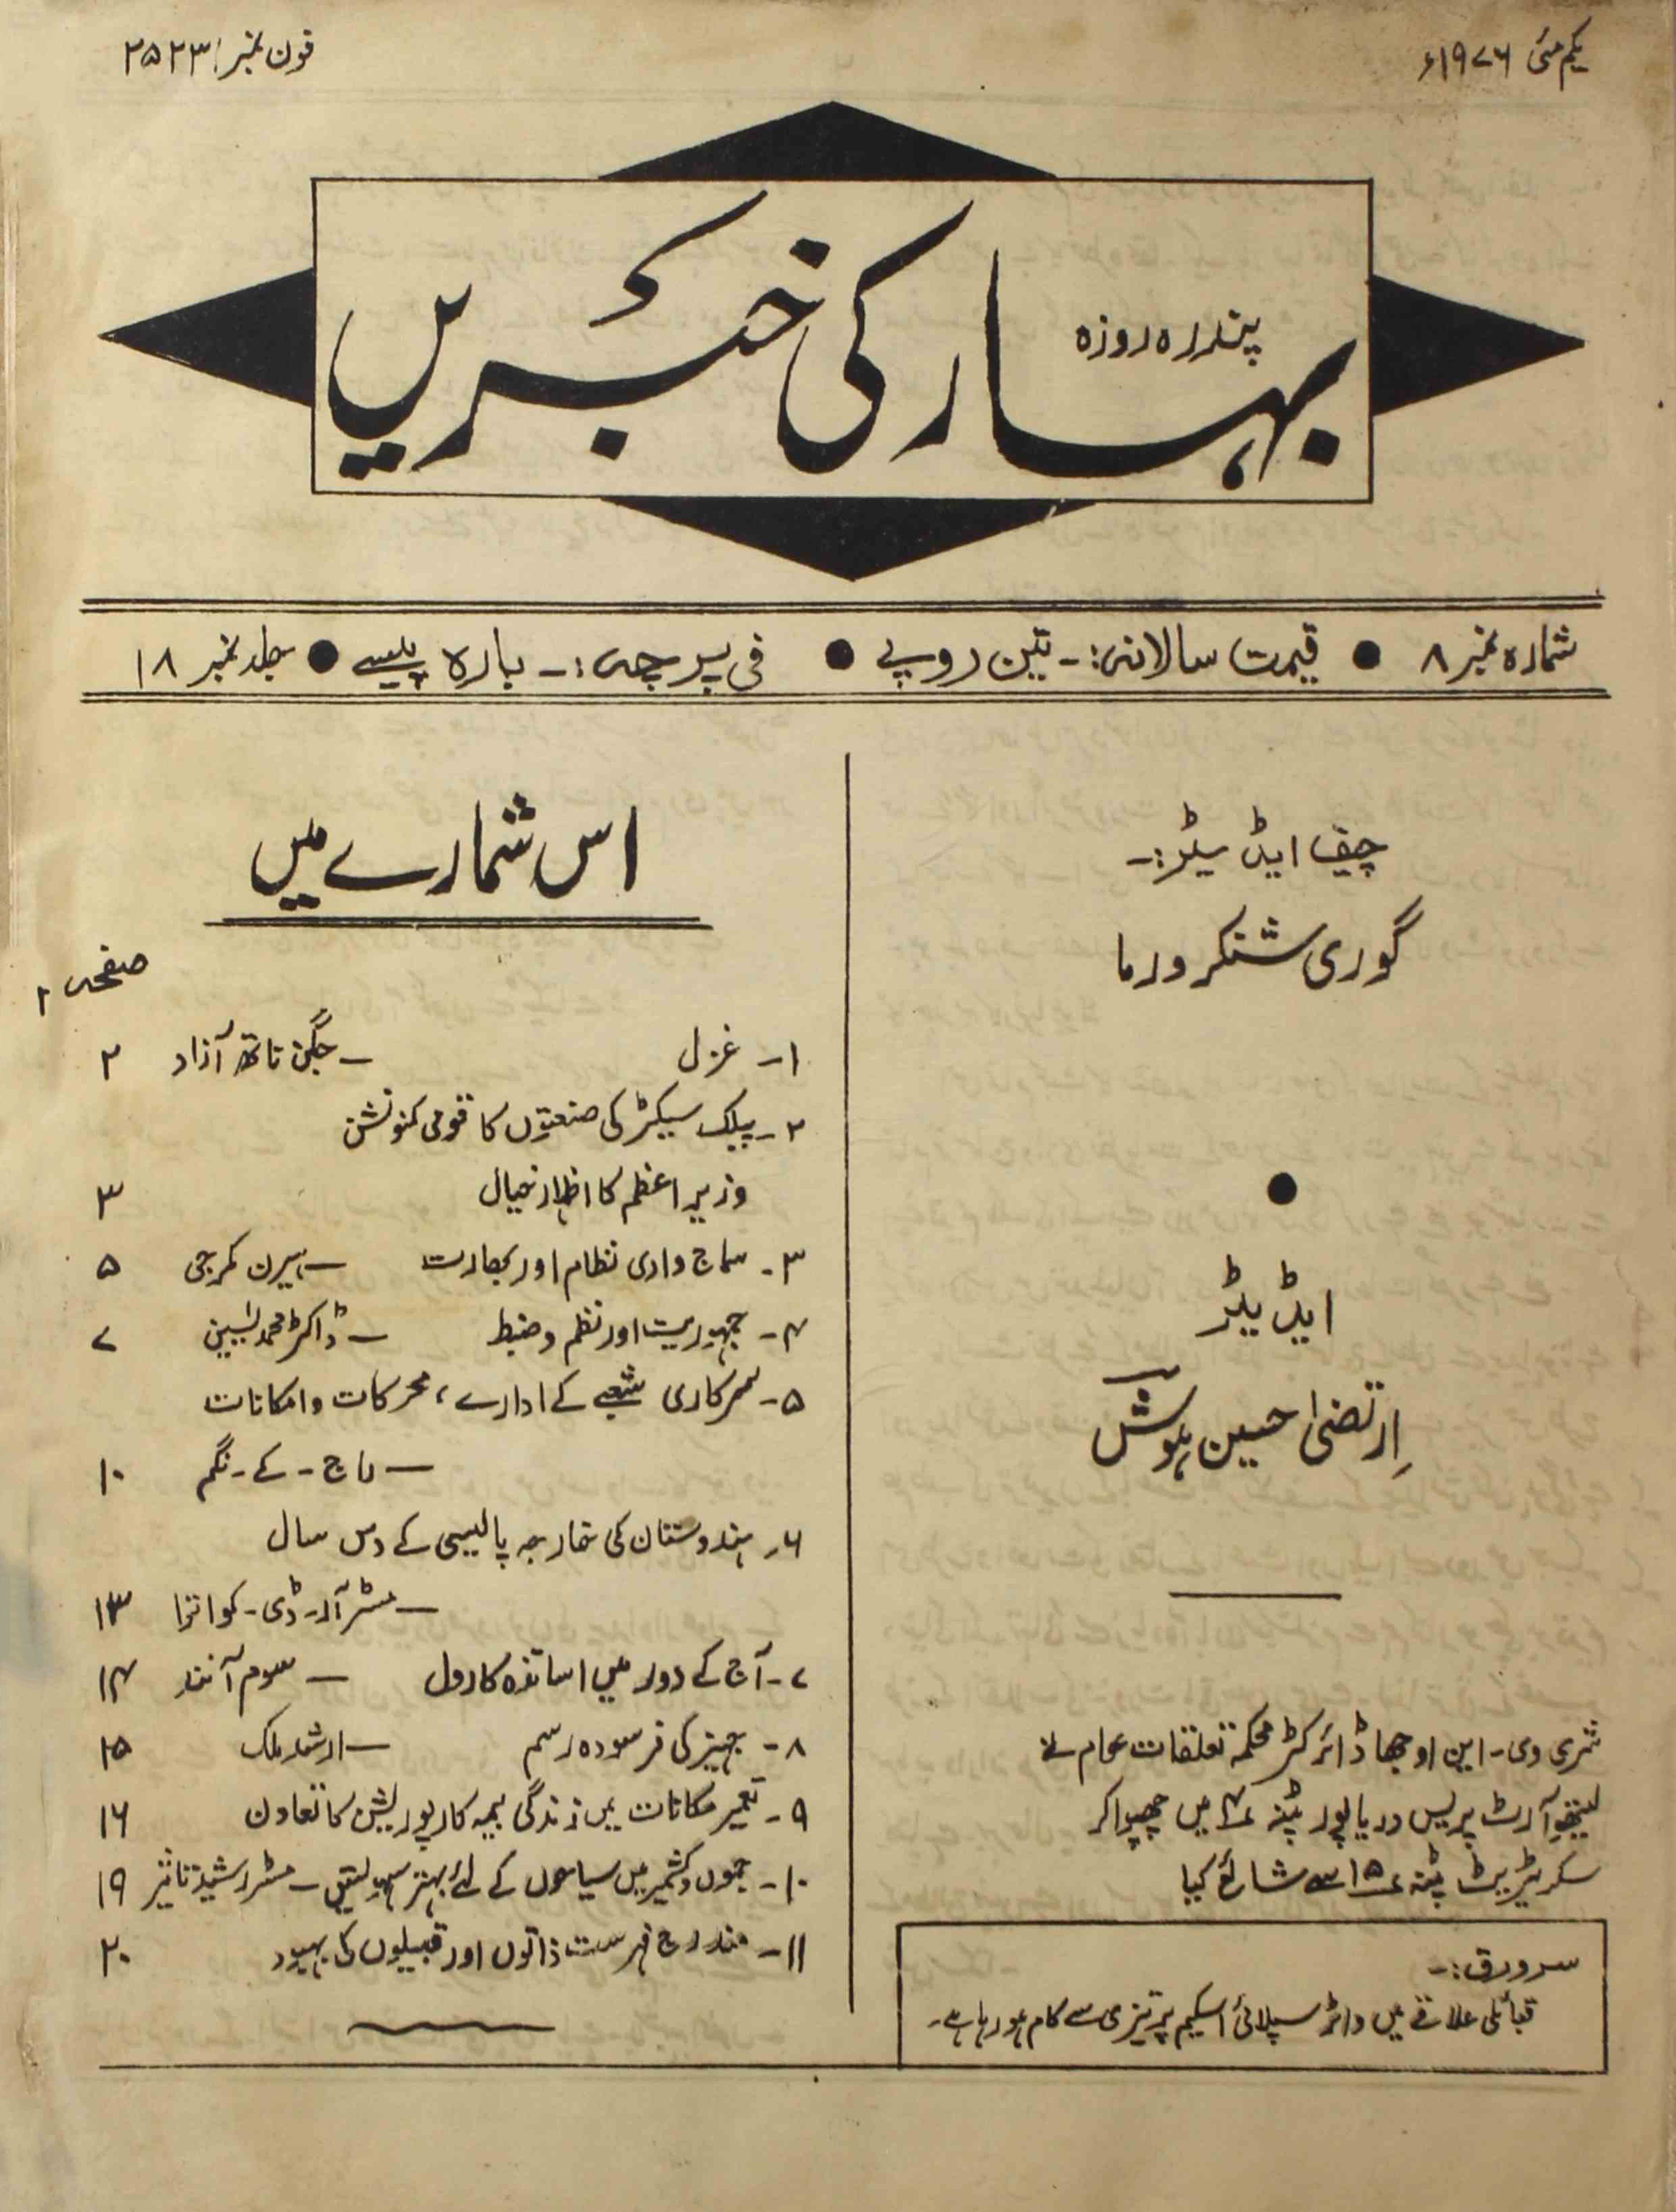 یکم مئی ۱۹۷۶ء
فون نمبر: ۲۵۲۳
پندرہ روزہ
بہار کی خبریں
شمارہ نمبر ۸ ● قیمت سالانہ:۔ تین روپے ● فی پرچہ:۔ بارہ پیسے ● جلد نمبر ۱۸
چیف ایڈیٹر:۔
گوری شنکر ورما
●
ایڈیٹر
اِرتضیٰ حسین ہوش
شری وی۔ این اوجھا ڈائرکٹر محکمہ تعلقات عام نے
لیتھو آرٹ پریس دریا پور پٹنہ ۴ میں چھپوا کر
سکریٹریٹ پٹنہ ۱۵ سے شائع کیا
سرورق:۔
قبائلی علاقے میں واٹر سپلائی اسکیم پر تیزی سے کام ہو رہا ہے۔
اس شمارے میں
صفحہ
۱۔ غزل — جگن ناتھ آزاد ۲
۲۔ پبلک سیکٹر کی صنعتوں کا قومی کنونشن
وزیر اعظم کا اظہار خیال ۳
۳۔ سماج وادی نظام اور بھارت — ہیرن مکرجی ۵
۴۔ جمہوریت اور نظم و ضبط — ڈاکٹر محمد یٰسین ۷
۵۔ سرکاری شعبے کے ادارے، محرکات و امکانات
— راج۔ کے۔ نگم ۱۰
۶۔ ہندوستان کی خارجہ پالیسی کے دس سال
— مسٹر آر۔ ڈی۔ کواترا ۱۳
۷۔ آج کے دور میں اساتذہ کا رول — سوم آنند ۱۴
۸۔ جہیز کی فرسودہ رسم — ارشد ملک ۱۵
۹۔ تعمیر مکانات میں زندگی بیمہ کارپوریشن کا تعاون ۱۶
۱۰۔ جموں و کشمیر میں سیاحوں کے لئے بہتر سہولتیں — مسٹر رشید تاثیر ۱۹
۱۱۔ مندرج فہرست ذاتوں اور قبیلوں کی بہبود ۲۰